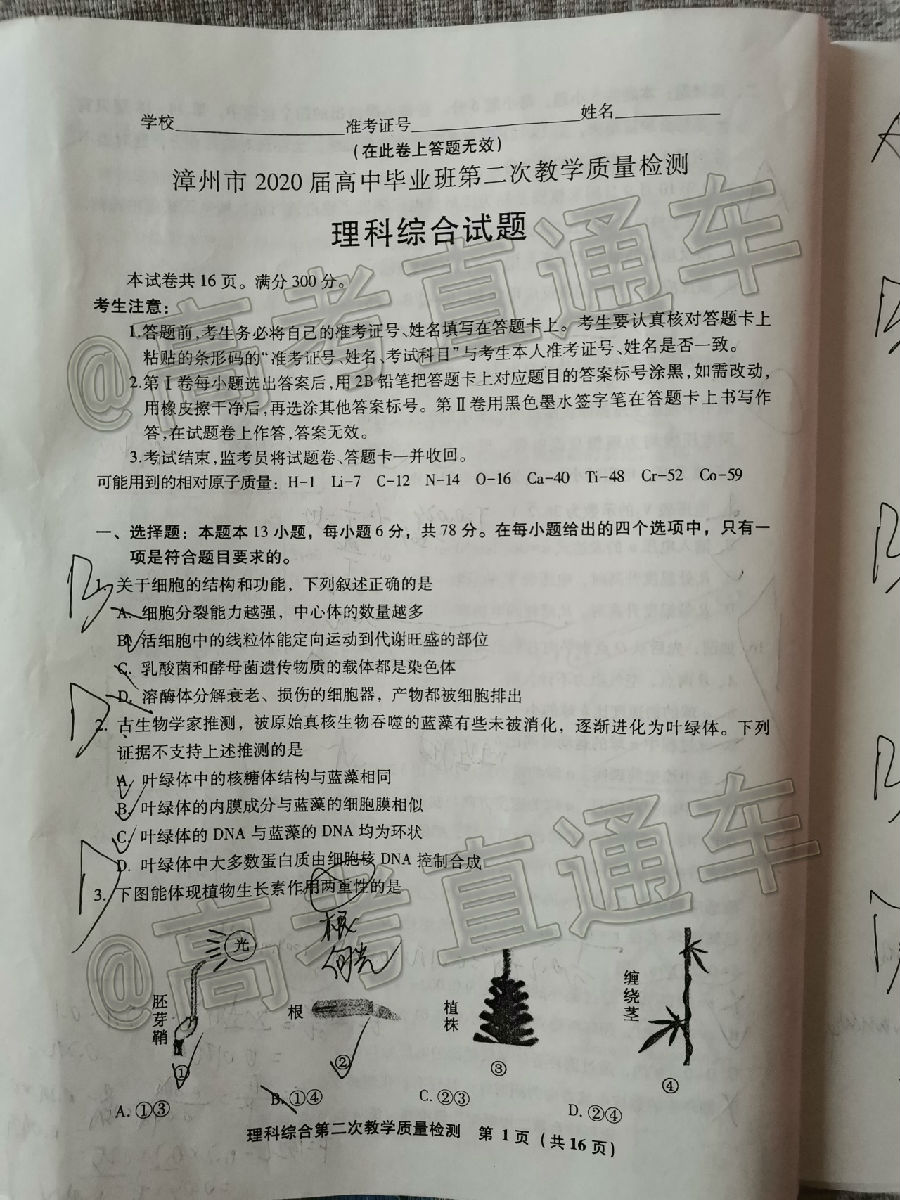 学校 准考证号 姓名
(在此卷上答题无效)
漳州市 2020 届高中毕业班第二次教学质量检测
理科综合试题
本试卷共 16 页。满分 300 分。
考生注意:
1.答题前,考生务必将自己的准考证号、姓名填写在答题卡上。考生要认真核对答题卡上
粘贴的条形码的“准考证号、姓名、考试科目”与考生本人准考证号、姓名是否一致。
2.第Ⅰ卷每小题选出答案后,用 2B 铅笔把答题卡上对应题目的答案标号涂黑,如需改动,
用橡皮擦干净后,再选涂其他答案标号。第Ⅱ卷用黑色墨水签字笔在答题卡上书写作
答,在试题卷上作答,答案无效。
3.考试结束,监考员将试题卷、答题卡一并收回。
可能用到的相对原子质量: H-1 Li-7 C-12 N-14 O-16 Ca-40 Ti-48 Cr-52 Co-59
一、选择题:本题本 13 小题,每小题 6 分,共 78 分。在每小题给出的四个选项中,只有一
项是符合题目要求的。
B
1. 关于细胞的结构和功能,下列叙述正确的是
A. 细胞分裂能力越强,中心体的数量越多
B. 活细胞中的线粒体能定向运动到代谢旺盛的部位
C. 乳酸菌和酵母菌遗传物质的载体都是染色体
D. 溶酶体分解衰老、损伤的细胞器,产物都被细胞排出
D
2. 古生物学家推测,被原始真核生物吞噬的蓝藻有些未被消化,逐渐进化为叶绿体。下列
证据不支持上述推测的是
A. 叶绿体中的核糖体结构与蓝藻相同
B. 叶绿体的内膜成分与蓝藻的细胞膜相似
C. 叶绿体的 DNA 与蓝藻的 DNA 均为环状
D. 叶绿体中大多数蛋白质由细胞核 DNA 控制合成
D
3. 下图能体现植物生长素作用两重性的是
根
向光
光
胚芽鞘
根
植株
缠绕茎
① ② ③ ④
A. ①③ B. ①④ C. ②③ D. ②④
理科综合第二次教学质量检测 第 1 页 (共 16 页)
@高考直通车
@高考直通车